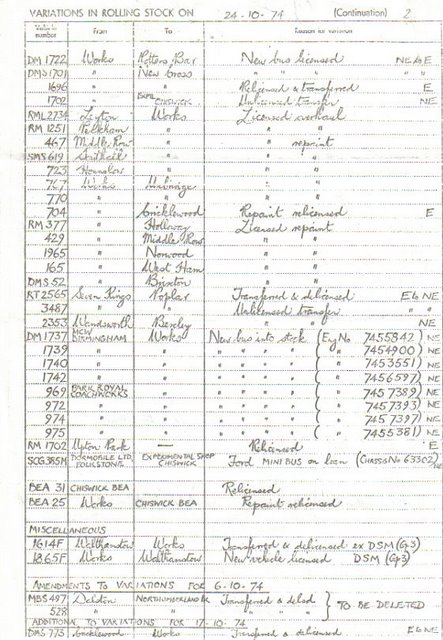 VARIATIONS IN ROLLING STOCK ON 24-10-74 (Continuation) 2
number From To Reason for variation
DM 1722 Works Potters Bar New bus licensed NE to E
DMS 1701 " New Cross " " " "
1696 " " Relicensed & transferred E
1702 " CHISWICK Unlicensed transfer NE
RML 2734 Leyton Works Licensed overhaul
RM 1251 Peckham " " "
467 Middle Row " " repaint
SMS 619 Southall " " "
723 Hounslow " " "
767 Works Uxbridge " "
770 " " " "
704 " Cricklewood Repaint relicensed E
RM 377 " Holloway Licensed repaint
429 " Middle Row " "
1965 " Norwood " "
165 " West Ham " "
DMS 52 " Brixton " "
RT 2565 Seven Kings Poplar Transferred & delicensed E to NE
3487 " " Unlicensed transfer NE
2353 Wandsworth Bexley " " NE
DM 1737 MCW BIRMINGHAM Works New bus into stock (Eng No 7455842) NE
1739 " " " " " " ( " 7454900) NE
1740 " " " " " " ( " 7453551) NE
1742 " " " " " " ( " 7456597) NE
969 PARK ROYAL COACHWORKS " " " " " ( " 7457389) NE
972 " " " " " " ( " 7457393) NE
974 " " " " " " ( " 7457397) NE
975 " " " " " " ( " 7455381) NE
RM 1702 Upton Park — Relicensed E
SCG 385M DORMOBILE LTD. FOLKSTONE EXPERIMENTAL SHOP CHISWICK Ford MINI BUS on loan (CHASSIS No 63302) NE
BEA 31 CHISWICK BEA Relicensed
BEA 25 Works CHISWICK BEA Repaint relicensed
MISCELLANEOUS
1614F Walthamstow Works Transferred & delicensed ex DSM (Gp3)
1865F Works Walthamstow New vehicle licensed DSM (Gp3)
AMENDMENTS TO VARIATIONS FOR 6-10-74
MBS 497 Dalston NORTHUMBERLAND PK Transferred & delsd } TO BE DELETED
528 " " " "
ADDITIONAL TO VARIATIONS FOR 17-10-74
DMS 773 Cricklewood Works Transferred & delicensed E to NE